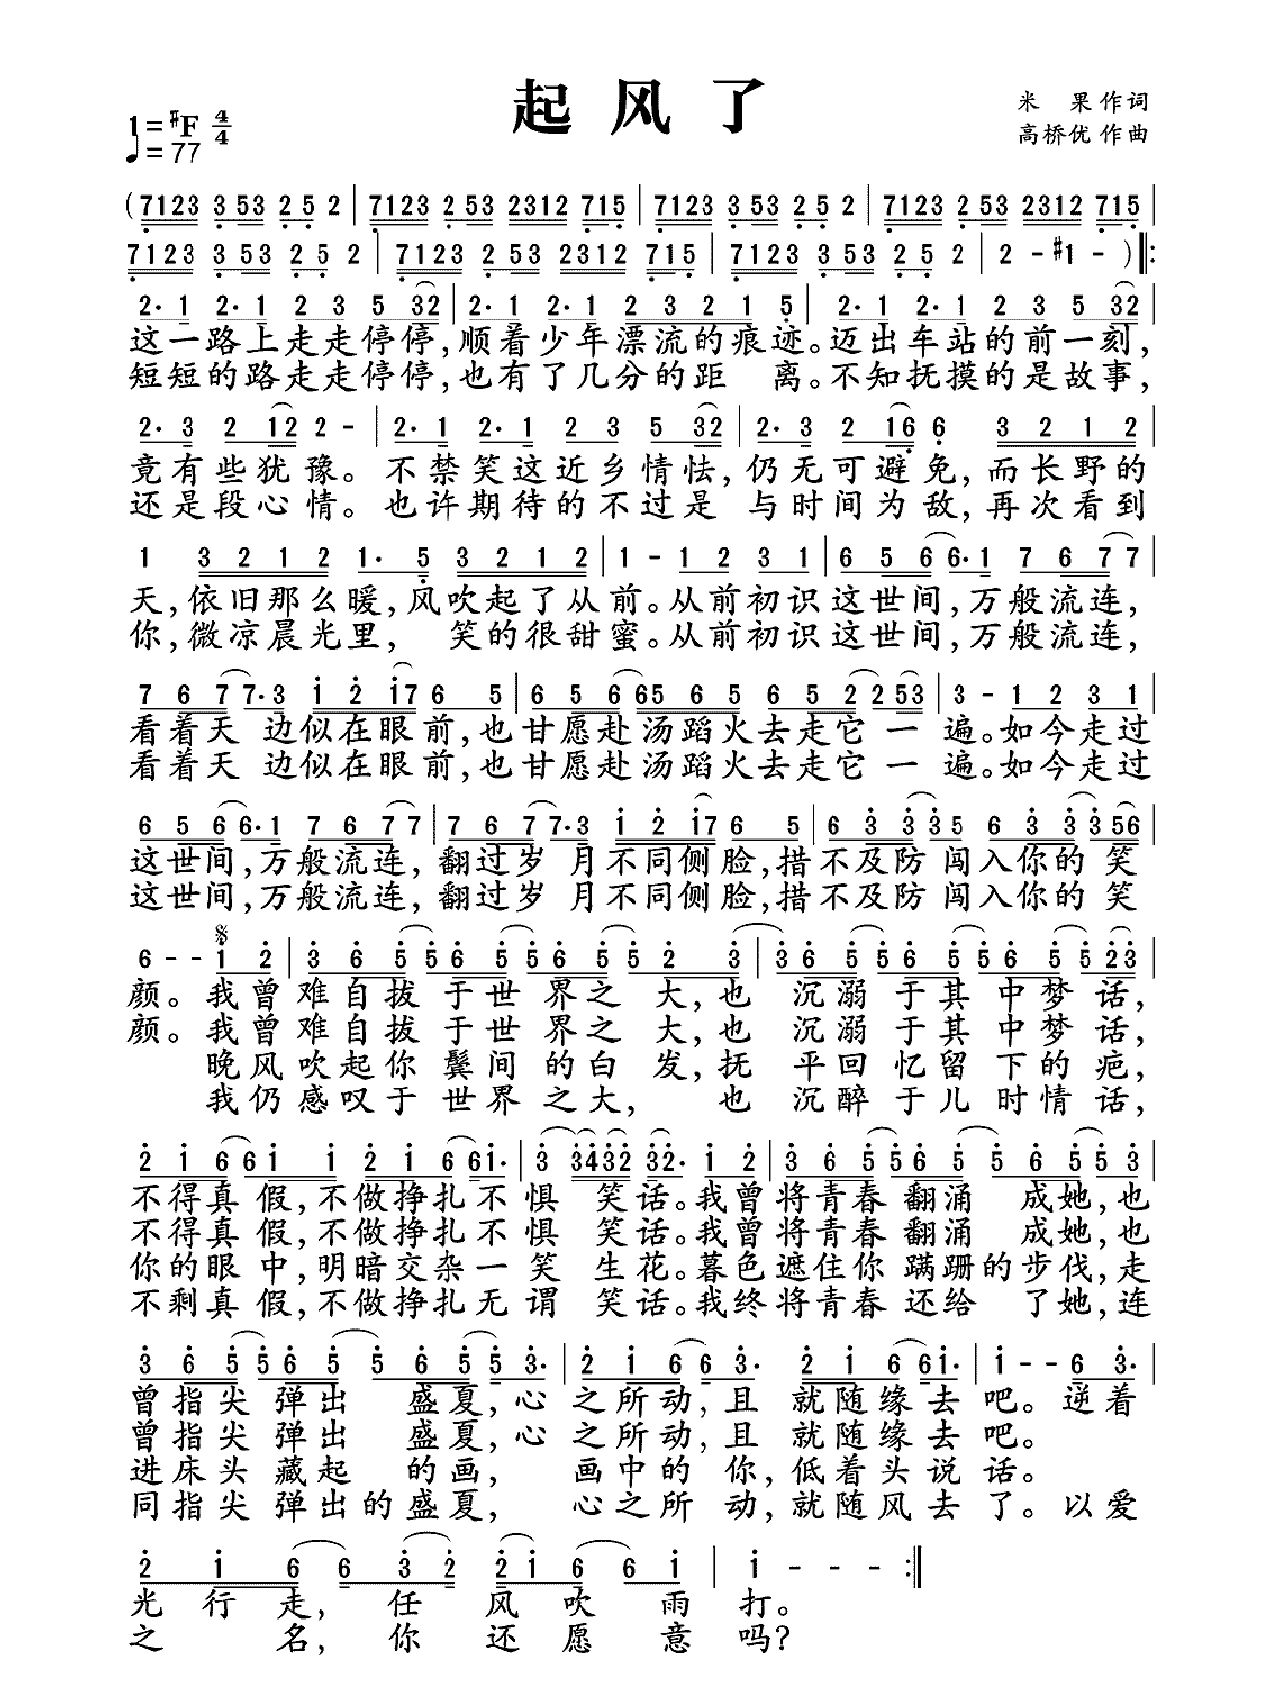 起风了
米 果作词
高桥优作曲
1=#F 4/4
♩=77
(7123 3 53 2 5 2 | 7123 2 53 2312 715 | 7123 3 53 2 5 2 | 7123 2 53 2312 715 |
7123 3 53 2 5 2 | 7123 2 53 2312 715 | 7123 3 53 2 5 2 | 2 - #1 - ) ‖:
2· 1 2· 1 2 3 5 32 | 2· 1 2· 1 2 3 2 1 5 | 2· 1 2· 1 2 3 5 32 |
这一路上走走停停,顺着少年漂流的痕迹。迈出车站的前一刻,
短短的路走走停停,也有了几分的距 离。不知抚摸的是故事,
2· 3 2 12 2 - | 2· 1 2· 1 2 3 5 32 | 2· 3 2 16 6 3 2 1 2 |
竟有些犹豫。不禁笑这近乡情怯,仍无可避免,而长野的
还是段心情。也许期待的不过是 与时间为敌,再次看到
1 3 2 1 2 1· 5 3 2 1 2 | 1 - 1 2 3 1 | 6 5 6 6· 1 7 6 7 7 |
天,依旧那么暖,风吹起了从前。从前初识这世间,万般流连,
你,微凉晨光里, 笑的很甜蜜。从前初识这世间,万般流连,
7 6 7 7· 3 1 2 17 6 5 | 6 5 6 65 6 5 6 5 2 2 53 | 3 - 1 2 3 1 |
看着天 边似在眼前,也甘愿赴汤蹈火去走它一 遍。如今走过
看着天 边似在眼前,也甘愿赴汤蹈火去走它一 遍。如今走过
6 5 6 6· 1 7 6 7 7 | 7 6 7 7· 3 1 2 17 6 5 | 6 3 3 3 5 6 3 3 3 56 |
这世间,万般流连,翻过岁 月不同侧脸,措不及防 闯入你的 笑
这世间,万般流连,翻过岁 月不同侧脸,措不及防 闯入你的 笑
6 - - 1 2 | 3 6 5 5 6 5 5 6 5 5 2 3 | 3 6 5 5 6 5 5 6 5 5 23 |
颜。我曾难自拔 于世 界之 大,也 沉溺 于其 中梦 话,
颜。我曾难自拔 于世 界之 大,也 沉溺 于其 中梦 话,
晚风吹起你 鬓间 的白 发,抚 平回 忆留 下的 疤,
我仍感叹于 世界 之大, 也 沉醉 于儿 时情 话,
2 1 6 6 1 1 2 1 6 6 1· | 3 3432 32· 1 2 | 3 6 5 5 6 5 5 6 5 5 3 |
不得真 假,不做挣扎不 惧 笑话。我曾将青春 翻涌 成她,也
不得真 假,不做挣扎不 惧 笑话。我曾将青春 翻涌 成她,也
你的眼 中,明暗交杂一 笑 生花。暮色遮住你 蹒跚的步伐,走
不剩真 假,不做挣扎无 谓 笑话。我终将青春 还给 了她,连
3 6 5 5 6 5 5 6 5 5 3· | 2 1 6 6 3· 2 1 6 6 1· | 1 - - 6 3· |
曾指尖 弹出 盛夏,心 之所动,且 就随缘去 吧。逆着
曾指尖 弹出 盛夏,心 之所动,且 就随缘去 吧。
进床头 藏起 的画, 画中的 你,低着头说 话。
同指尖 弹出的盛夏, 心之所 动,就随风去 了。以爱
2 1 6 6 3 2 2 1 6 6 1 | 1 - - - :‖
光行走, 任 风吹雨 打。
之 名, 你 还愿意 吗?